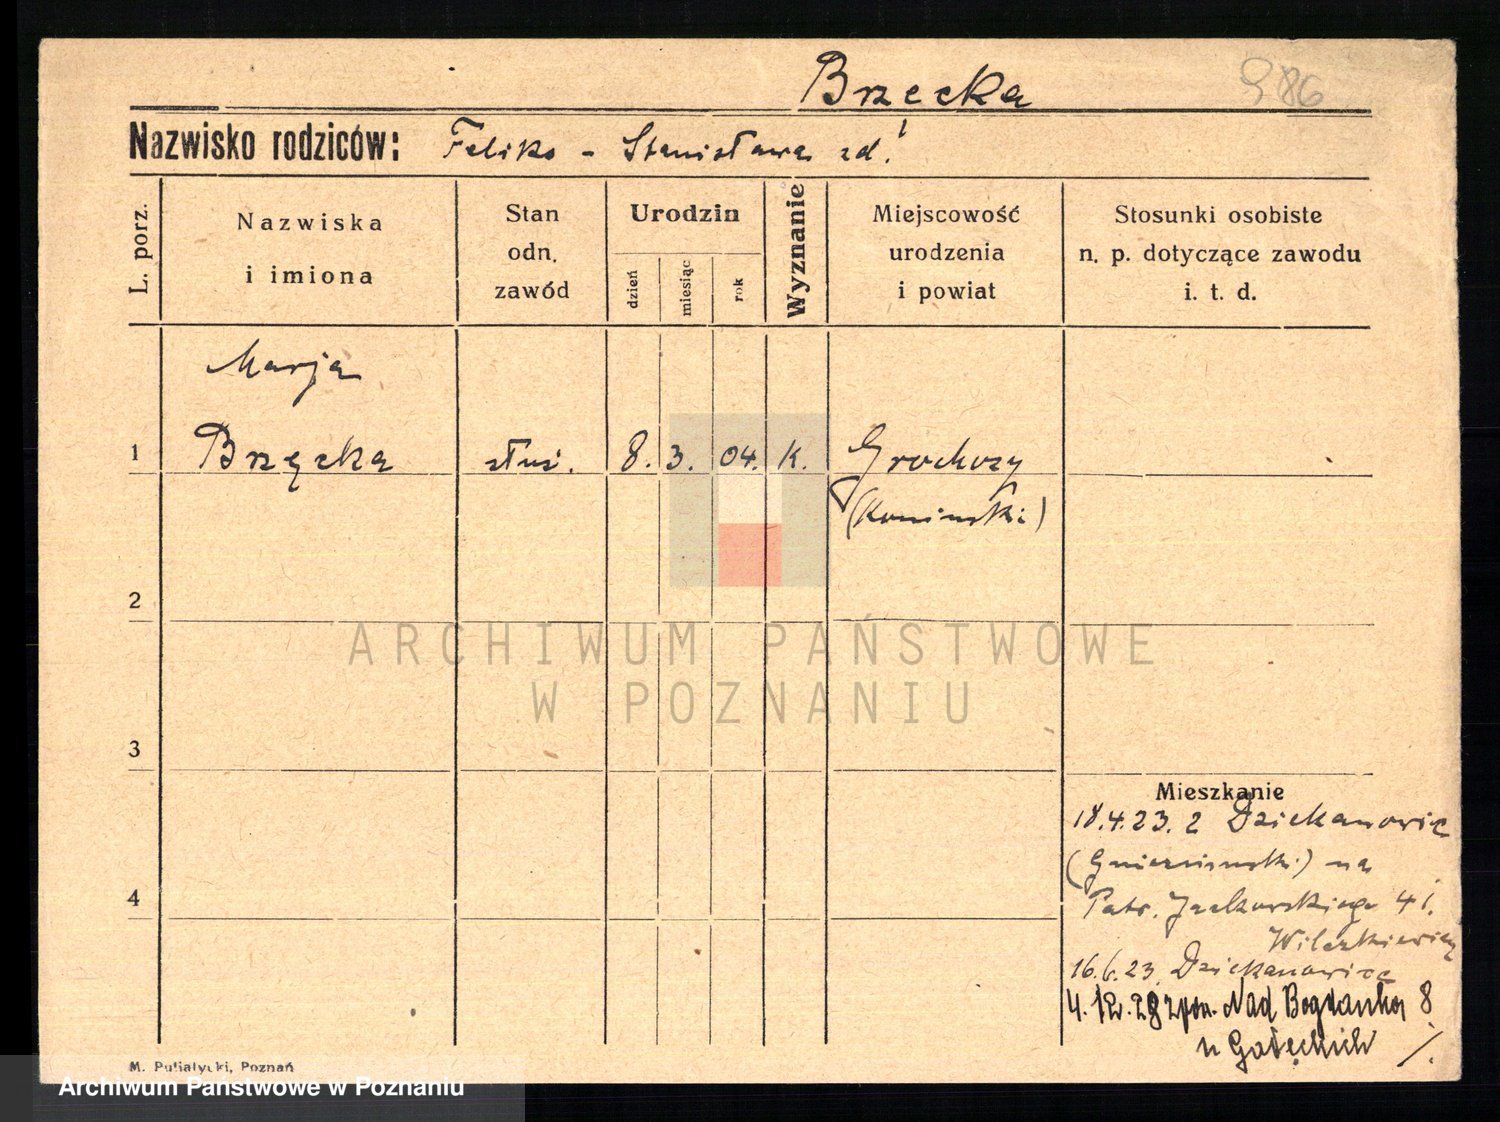 Brzecka
986
Nazwisko rodziców: Feliks - Stanisława zd!
L. porz.
Nazwiska
i imiona
Stan
odn.
zawód
Urodzin
dzień
miesiąc
rok
Wyznanie
Miejscowość
urodzenia
i powiat
Stosunki osobiste
n. p. dotyczące zawodu
i. t. d.
Marja
1 Brzęcka służ. 8. 3. 04. K. Grochozy
(Koniński)
2
ARCHIWUM PAŃSTWOWE
W POZNANIU
3
4
Mieszkanie
18.4.23. z Dziekanowic
(Gnieźnieński) na
Patr. Jackowskiego 41.
16.6.23. Dziekanowice
4. 12. 28 z pow. Nad Bogdanką 8
u Gałęckich
M. Putiatycki, Poznań
Archiwum Państwowe w Poznaniu